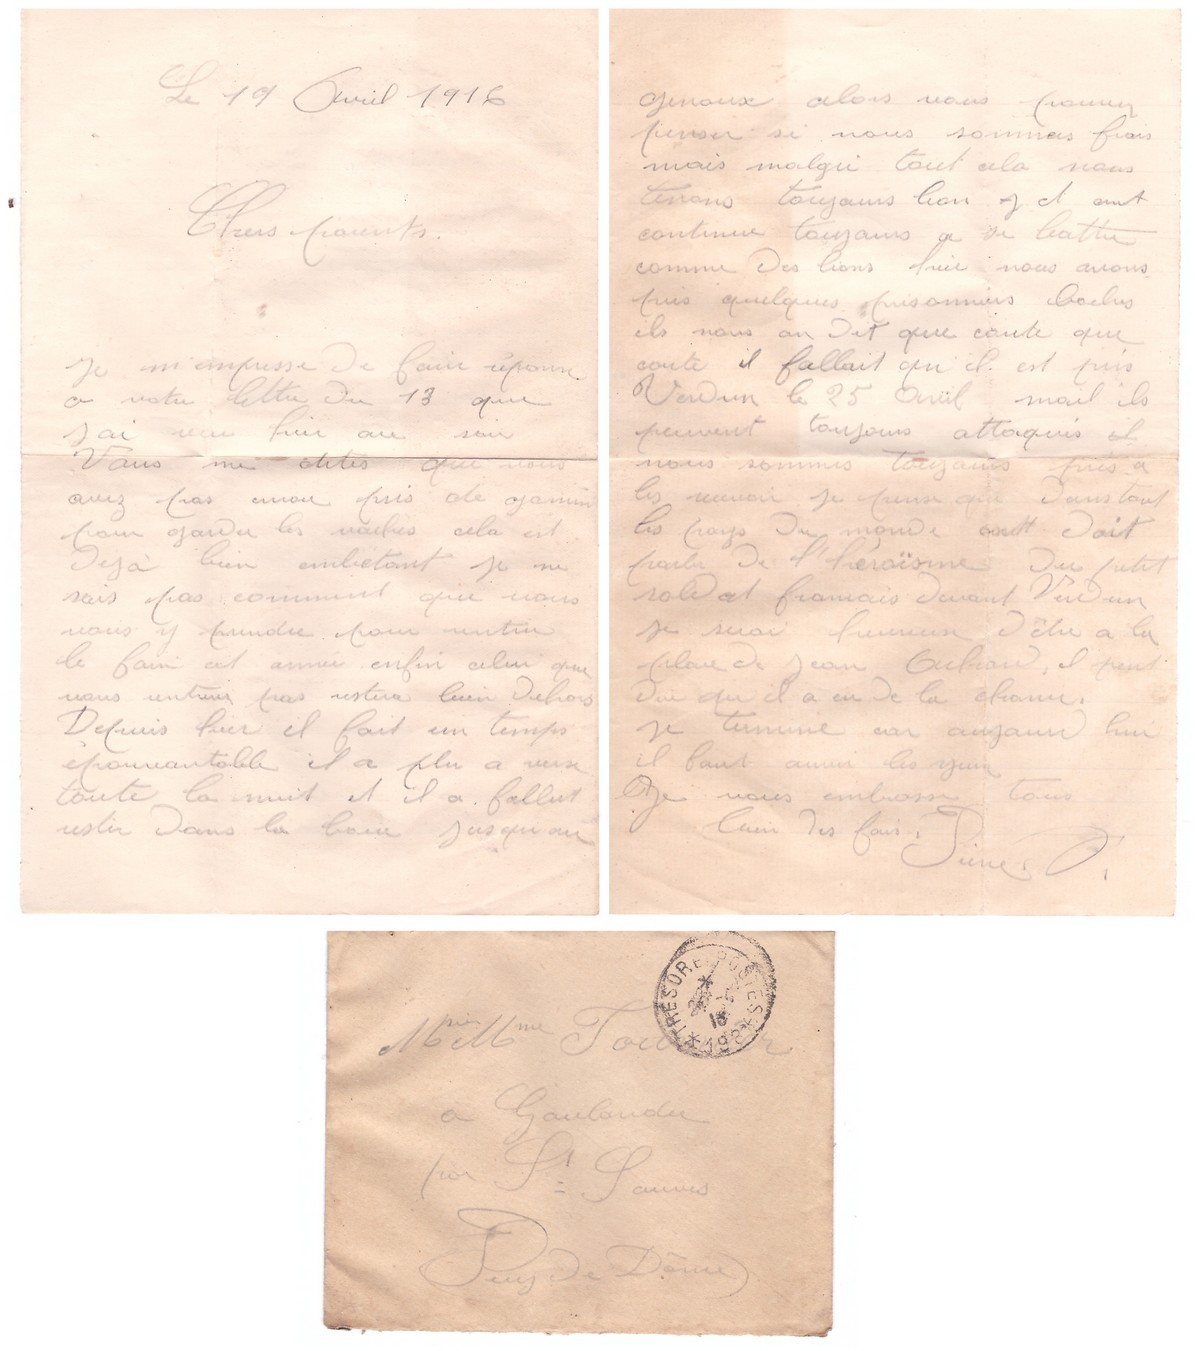 Le 19 Avril 1916
Chers parents.
Je m'empresse de faire réponse
a votre lettre du 13 que
j'ai reçu hier au soir
Vous me dites que vous
avez pas encor pris de gamin
pour garder les vaches cela est
Dejà bien embêtant je ne
sais pas comment que vous
vous y prendre pour rentrer
le foin cet année enfin celui que
vous rentrerez pas restera bien dehors
Depuis hier il fait un temps
épouvantable il a plu a verse
toute la nuit et il a fallut
rester dans la boue jusqu'au
genoux alors vous pouvez
penser si nous sommes frais
mais malgré tout cela nous
tenons toujours bon et ont
continue toujours a se battre
comme des lions hier nous avons
pris quelques prisonniers boches
ils nous on dit que coute que
coute il fallait qu'il est pris
Verdun le 25 Avril mail ils
peuvent toujours attaqués
nous sommes toujours près a
les recevoir je pense que dans tout
les pays du monde doit
parler de l'héroïsme du petit
soldat francais devant Verdun
je serai heureux d'être a la
place de Jean il peut
dire qu'il a eu de la chance.
je termine car aujourd hui
il faut
Je vous embrasse tous
bien des fois.
Pierre. T.
TRESOR ET POSTES
* 198 *
Mr et Mme
à
par St Sauves
Puy de Dôme